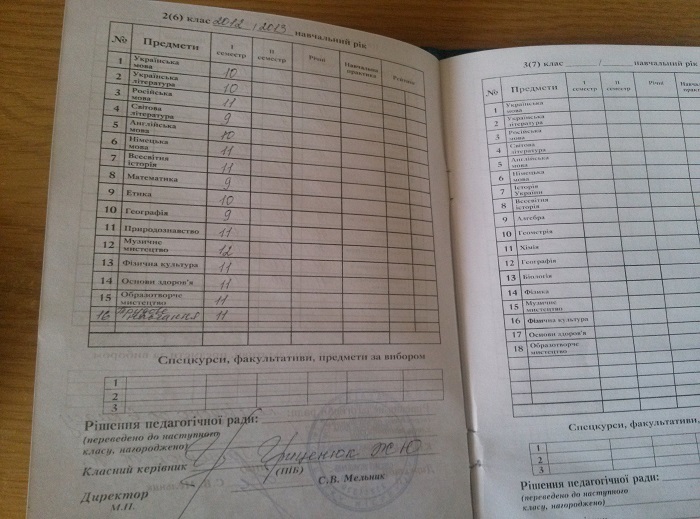 2(6) клас 2012 / 2013 навчальний рік
№ Предмети I семестр II семестр Річні Навчальна практика
1 Українська мова 10
2 Українська література 10
3 Російська мова 11
4 Світова література 9
5 Англійська мова 10
6 Німецька мова 11
7 Всесвітня історія 11
8 Математика 9
9 Етика 10
10 Географія 9
11 Природознавство 11
12 Музичне мистецтво 12
13 Фізична культура 11
14 Основи здоров'я 11
15 Образотворче мистецтво 11
16 Трудове навчання 11
Спецкурси, факультативи, предмети за вибором
1
2
3
Рішення педагогічної ради:
(переведено до наступного
класу, нагороджено)
Класний керівник Гриценюк Ж Ю
(ПІБ)
С.В. Мельник
Директор
М.П.
3(7) клас / навчальний рік
№ Предмети I семестр II семестр Річні
1 Українська мова
2 Українська література
3 Російська мова
4 Світова література
5 Англійська мова
6 Німецька мова
7 Історія України
8 Всесвітня історія
9 Алгебра
10 Геометрія
11 Хімія
12 Географія
13 Біологія
14 Фізика
15 Музичне мистецтво
16 Фізична культура
17 Основи здоров'я
18 Образотворче мистецтво
Спецкурси, факультативи,
1
2
3
Рішення педагогічної ради:
(переведено до наступного
класу, нагороджено)